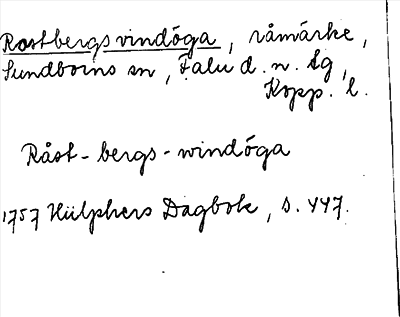 Rostbergs vindöga, råmärke,
Sundborns sn, Falu d. n. tg,
Kopp. l.
Råst-bergs-windöga
1757 Hülphers Dagbok, s. 447.